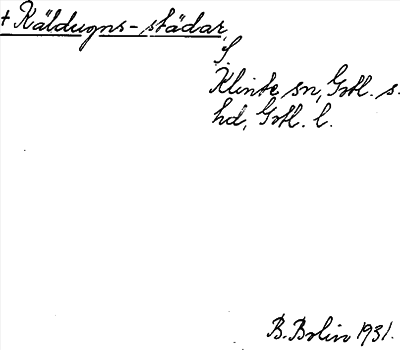 + Käldugns-städar,
f.
Klinte sn, Gotl. s.
hd, Gotl. l.
B. Bolin 1931.